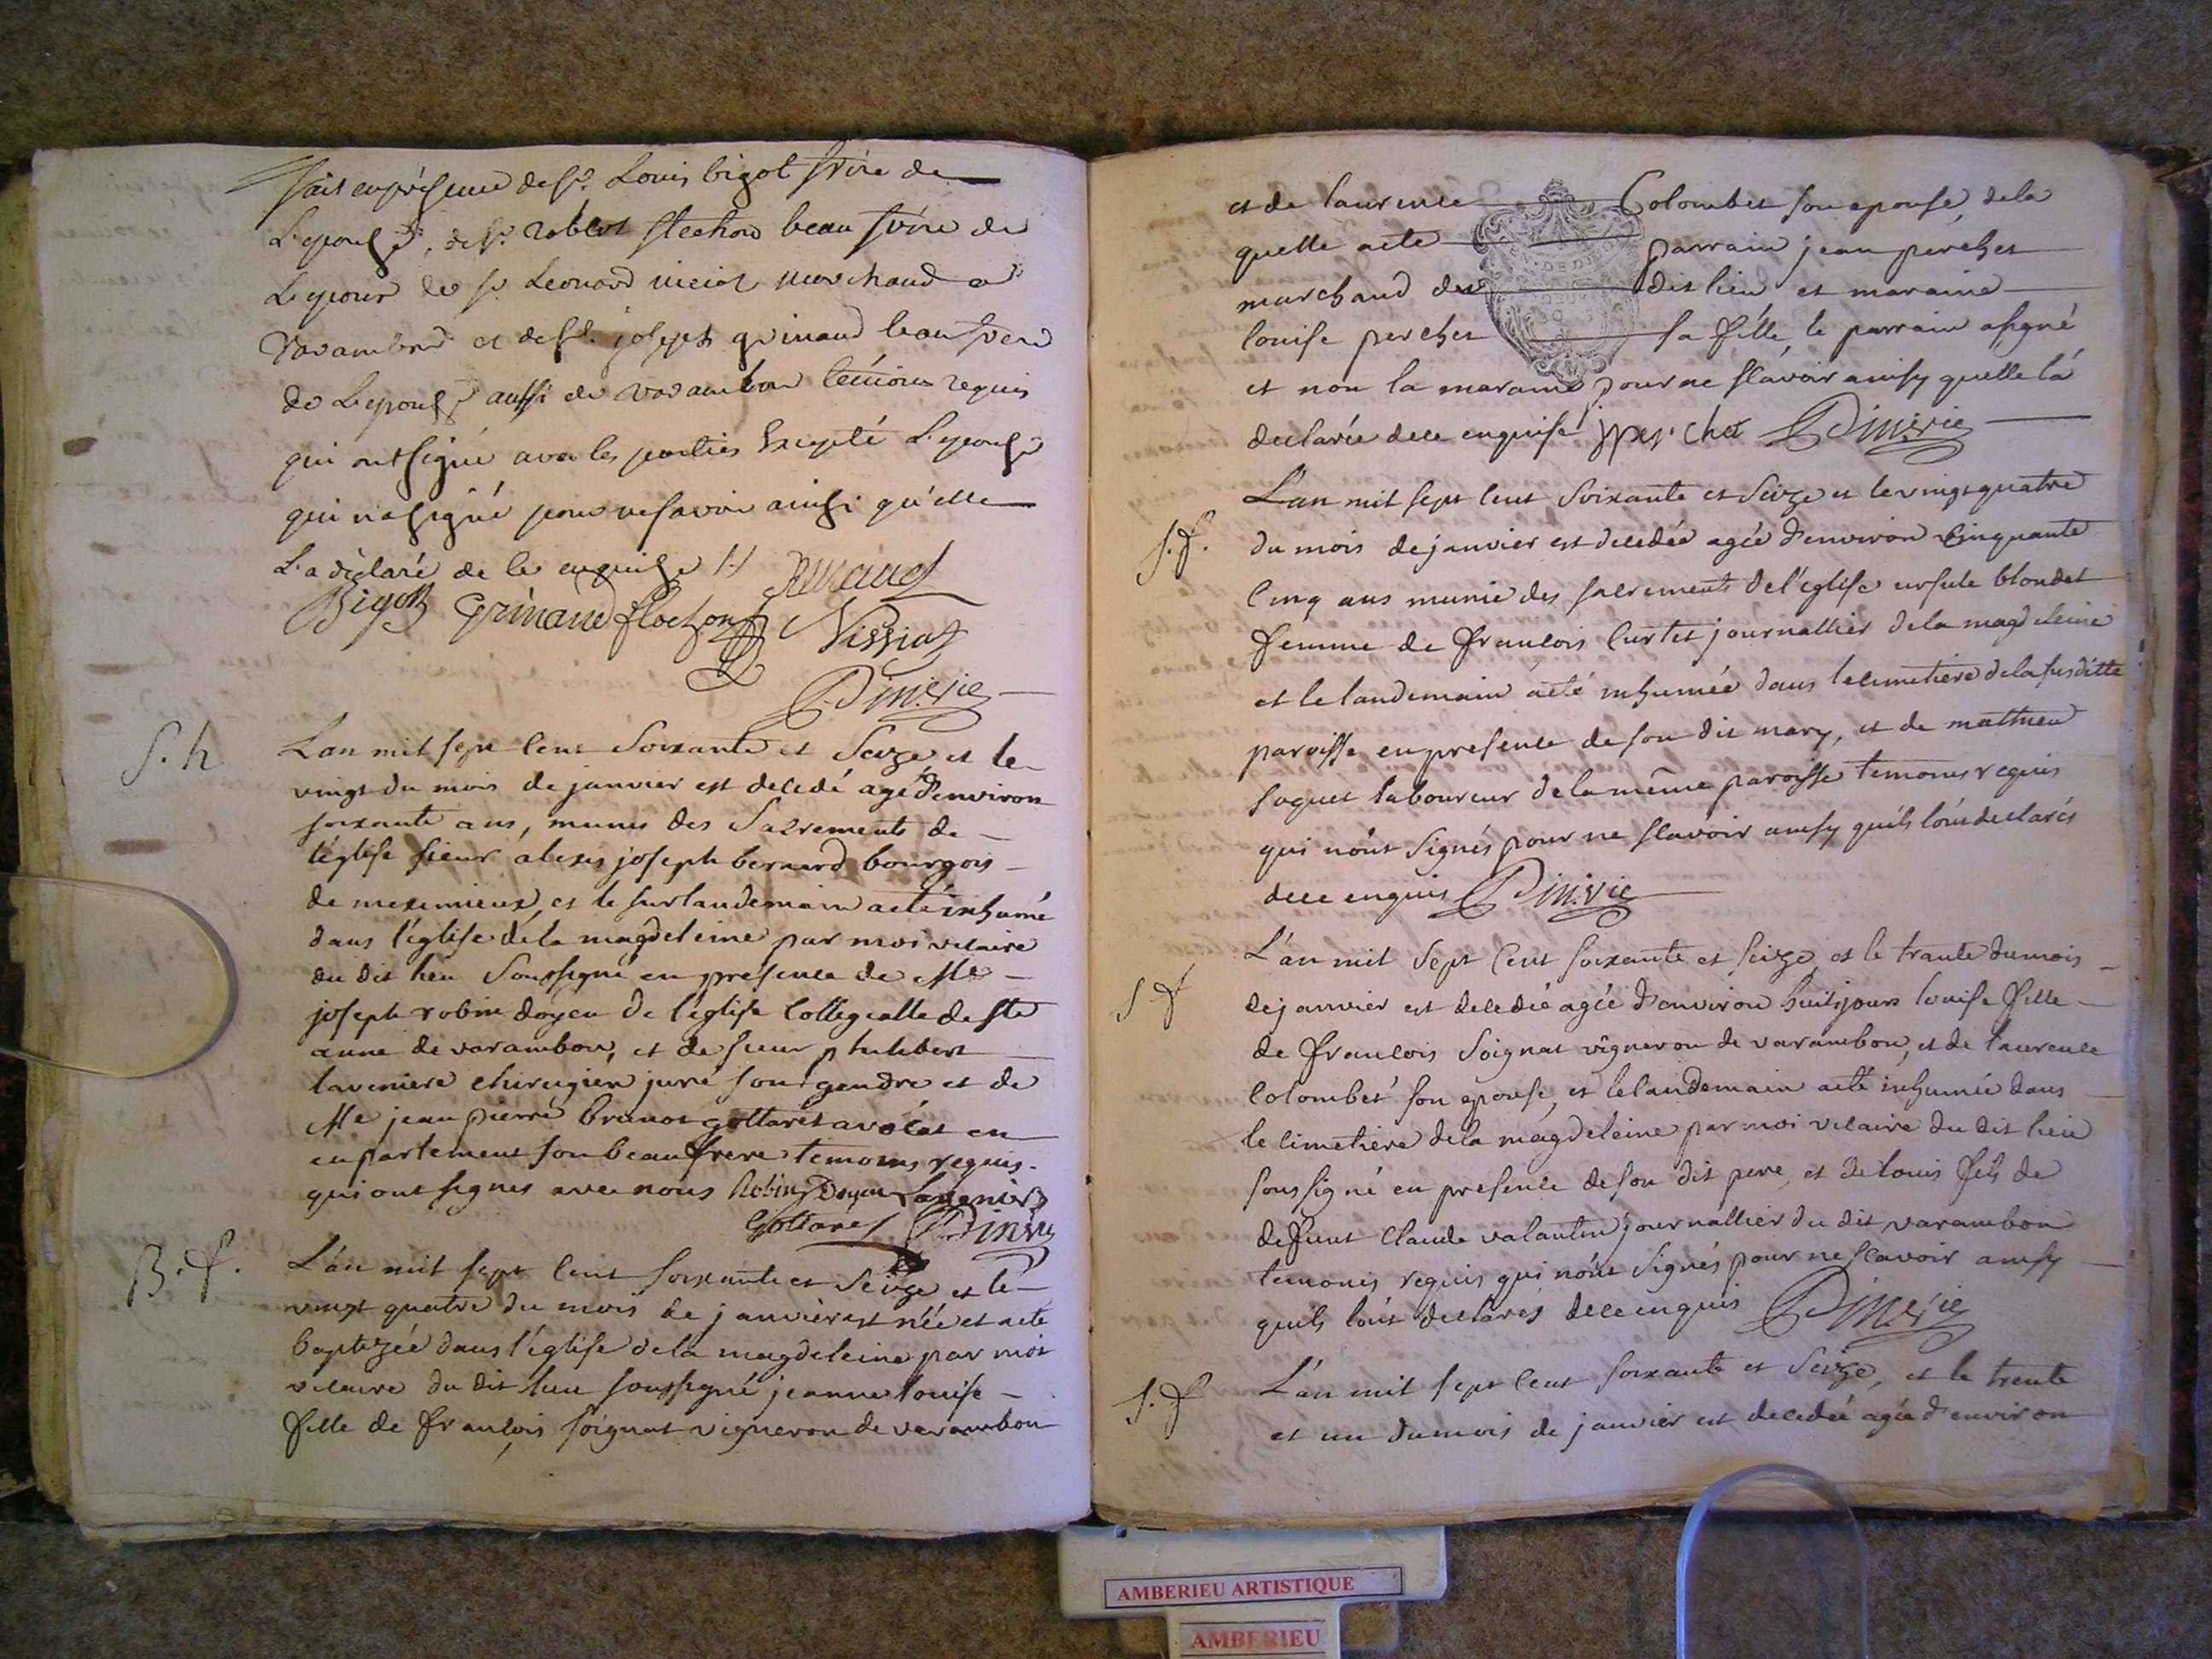 fait en présence de Sr. Louis bigot frère de
L'epouse, de Sr. flechon beau frère de
L'epoux de Sr. Leonard marchand a
Varambon et de Sr. joseph grinand beaufrere
de L'epouse aussi de varambon temoins requis
qui ont signé avec les parties Excepté L'epouse
qui na signé pour ne savoir ainsi qu'elle
L'a déclaré de ce enquise
Bigot Grinand flechon
Dimerie
S. h
L'an mil sept cent soixante et seize et le
vingt du mois de janvier est decedé agé d'environ
soixante ans, munis des Sacrements de
l'église sieur alexis joseph bernard bourgois
de meximieux, et le surlandemain a eté inhumé
dans l'église de la magdeleine par moi vicaire
du dit lieu soussigné en presence de Me
joseph robin doyen de l'église Collegialle de Ste
anne de varambon, et de sieur philibert
laveniere chirugien juré son gendre et de
Me jean pierre brunot gottaret avocat en
en parlement son beaufrere temoins requis
qui ont signes avec nous Robin Doyen
Gottaret Dimerie
B. f.
L'an mil sept cent soixante et seize et le
vingt quatre du mois de janvier est née et a eté
baptizée dans l'église de la magdeleine par moi
vicaire du dit lieu soussigné jeanne louise
fille de françois soignat vigneron de varambon
et de laurence Colombet son epouse, de la
quelle a eté parrain jean perchet
marchand du dit lieu et maraine
louise perchet sa fille, le parrain a signé
et non la maraine pour ne sçavoir ainsy quelle la
declarée de ce enquise perchet Dimerie
S. f.
L'an mil sept cent soixante et seize et le vingt quatre
du mois de janvier est decedée agée d'environ cinquante
cinq ans munie des sacrements de l'église ursule blondet
femme de francois curtet journallier de la magdeleine
et le landemain a eté inhumée dans le cimetière de la susditte
paroisse en presence de son dit mary, et de mathieu
soguet laboureur de la même paroisse temoins requis
qui n'ont signés pour ne sçavoir ainsy quils l'ont declarés
de ce enquis Dimerie
S. f
L'an mil sept cent soixante et seize et le trante du mois
de janvier est decedée agée d'environ huit jours louise fille
de francois soignat vigneron de varambon, et de laurence
colombet son epouse, et le landemain a eté inhumée dans
le cimetière de la magdeleine par moi vicaire du dit lieu
soussigné en presence de son dit pere, et de louis fils de
defunt claude valantin journallier du dit varambon
temoins requis qui n'ont signés pour ne sçavoir ainsy
quils l'ont declarés de ce enquis Dimerie
S. f
L'an mil sept cent soixante et seize, et le trente
et un du mois de janvier est decedée agée d'environ
AMBERIEU ARTISTIQUE
AMBERIEU